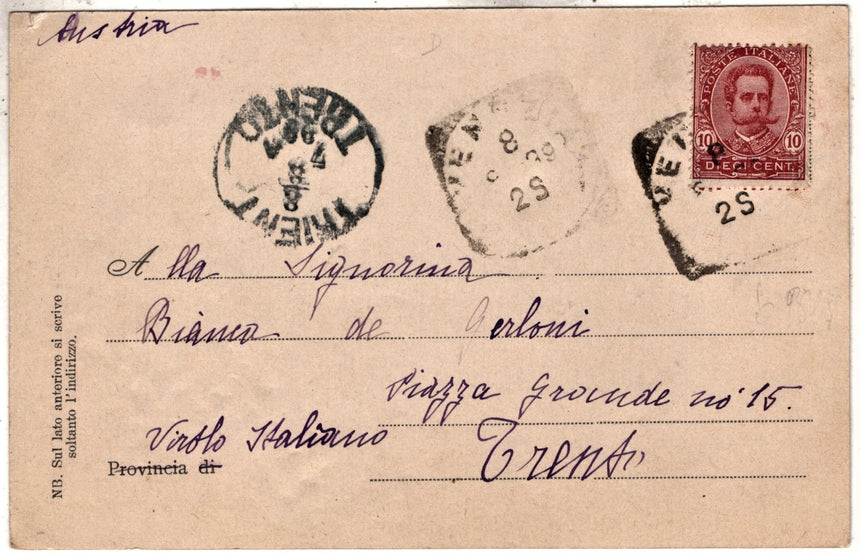 Austria
POSTE ITALIANE
10 10
DIECI CENT.
TRIENT
TRENTO
VEN
8
2S
VEN
8
2S
Alla Signorina
Bianca de Gerloni
Piazza Grande no 15.
Virolo Italiano
Trento
Provincia di
NB. Sul lato anteriore si scrive
soltanto l'indirizzo.